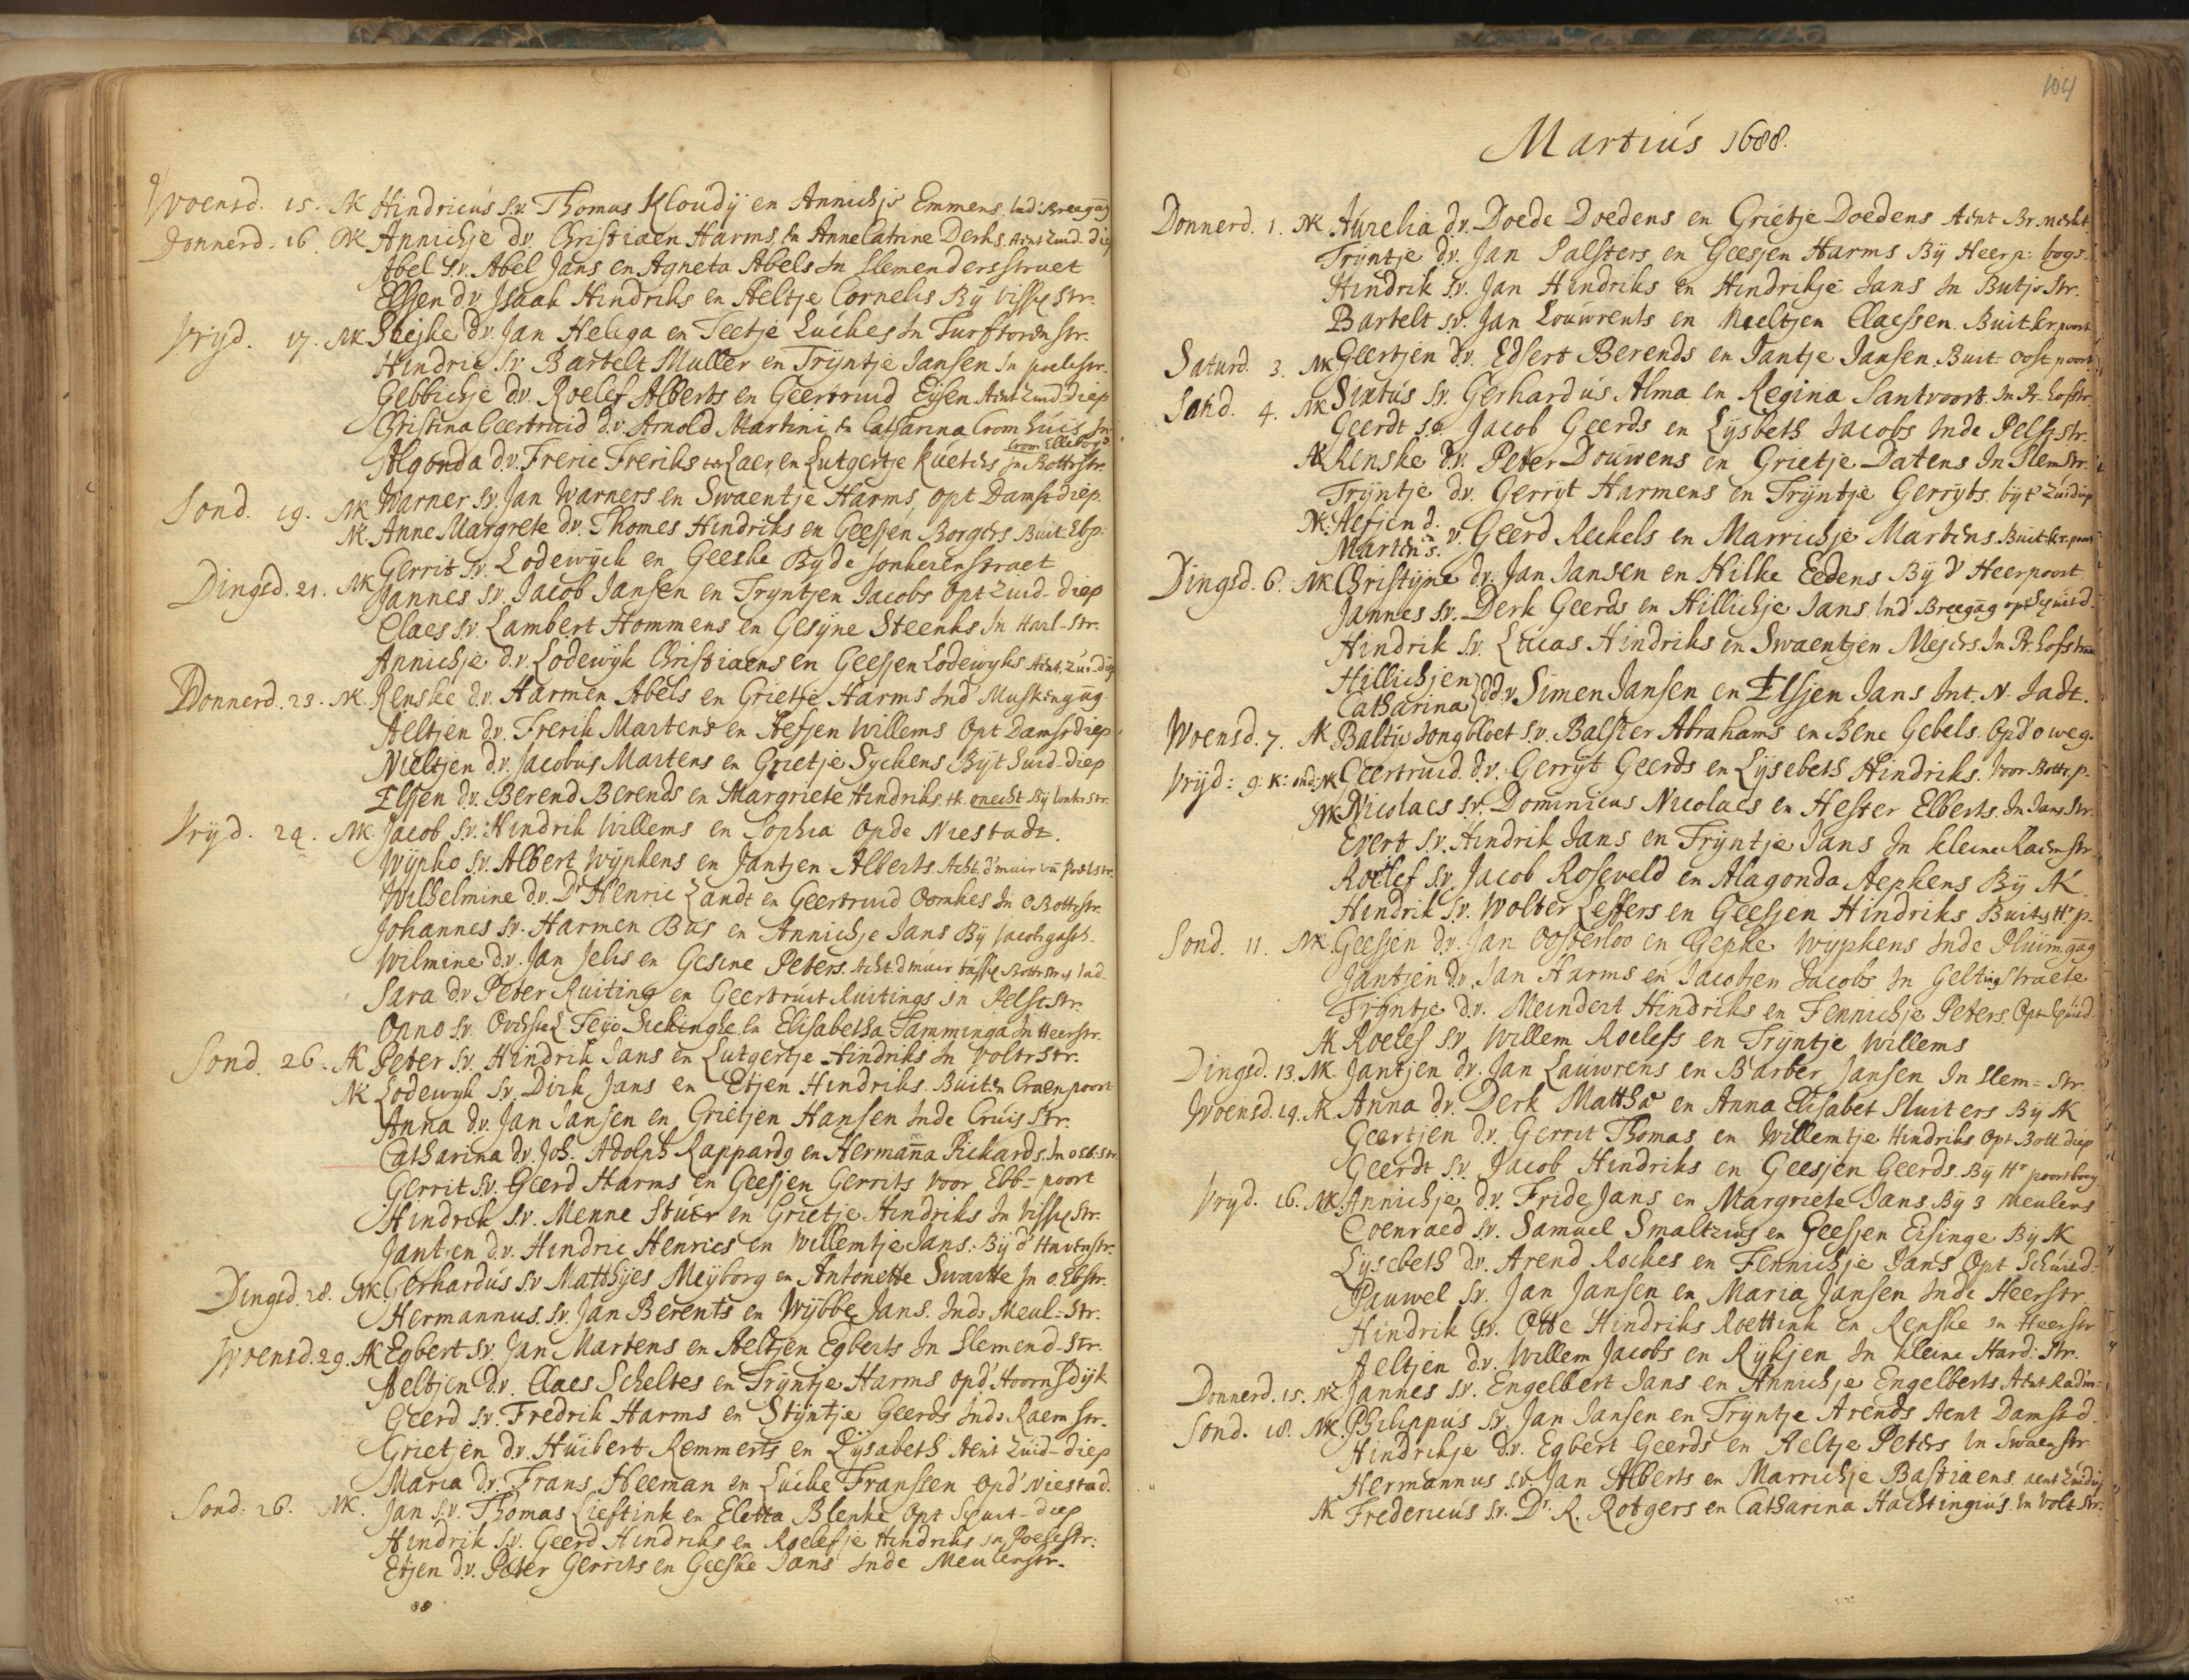 Woensd. 15. NK Hindricus s.v. Thomas Kloudij en Annichje Emmens. Ind' Breegag
Donnerd. 16. NK Annichje d.v. Christiaen Harms, en Anne Catrine Derks. Acht Zuid-diep
Abel s.v. Abel Jans en Agneta Abels In Slemendersstraet
Elsjen d.v. Isaak Hindriks en Aeltje Cornelis Bij visscherstr.
Vryd. 17. NK d.v. Jan Helega en Teetje Luickes In Turftorenstr.
Hindric s.v. Bartelt Muller en Tryntje Jansen In poelestr.
Gebbichje d.v. Roelef Alberts en Geertruid Eisen Acht Zuid diep
Christina Geertruid d.v. Arnold Martini, en Catharina Crom huis In
Crom Elleboog
Algonda d.v. Freric Freriks ter Laer, en Lutgertje In Bottrstr.
Sond. 19. NK Warner s.v. Jan Warners en Swaentje Harms, opt Damst-diep.
NK. Anne Margrete d.v. Thomes Hindriks en Geesjen Borgers Buit. Ebp.
Gerrit s.v. Lodewyck en Geeske By de Jonkerenstraet
Dingsd. 21. NK Jannes s.v. Jacob Jansen en Tryntjen Jacobs opt Zuid-diep
Claes s.v. Lambert Hommens en Gesyne Steenks In Harl-str.
Annichje d.v. Lodewyk Christiaens en Geesjen Lodewyks Acht. Zuid-diep
Donnerd. 23. NK. Renske d.v. Harmen Abels en Grietje Harms Ind' Muskengag.
Aeltjen d.v. Frerik Martens en Aefjen Willems Opt Damsterdiep
Nieltjen d.v. Jacobus Martens en Grietje Syckens Bijt Suid-diep
Elsjen d.v. Berend Berends en Margriete Hindriks, tk. onecht By Jonkerstr.
Vryd. 24. NK. Jacob s.v. Hindrik Willems en Sophia op de Niestadt.
Wypko s.v. Albert Wypkens en Jantjen Alberts. Acht. d' muir Poelstr.
Wilhelmine d.v. Dr Henric Landt en Geertruid Oomkes In O Bottrstr.
Johannes s.v. Harmen Bus en Annichje Jans Bij Jacobgasth.
Wilmine d.v. Jan Jelis en Gesine Peters. Acht. d muir
Sara d.v. Peter Ruiting en Geertruit Ruitings in Pelsterstr.
Onno s.v. Feijo Sickinghe en Elisabetha Tamminga In Heerstr.
Sond. 26. AK Peter s.v. Hindrik Jans en Lutgertje Hindriks In Voltrstr.
NK Lodewyk s.v. Dirk Jans en Etjen Hindriks. Buiten Craenpoort
Anna d.v. Jan Jansen en Grietjen Hansen Inde Cruis Str.
Catharina d.v. Joh. Adolph Rappardg en Hermanna Pickards. In o Eb-str.
Gerrit s.v. Geerd Harms en Geesjen Gerrits voor Ebb-poort
Hindrik s.v. Menne Stuer en Grietje Hindriks In Visscherstr.
Jantien d.v. Hindric Henrics en Willemtje Jans. Bij d' Havenstr.
Dingsd. 28. NK. Gerhardus s.v. Matthijes Meijborg en Antonette Swartte In o. Ebstr.
Hermannus s.v. Jan Berents en Wijbbe Jans. Inds Meul-str.
Woensd. 29. AK Egbert s.v. Jan Martens en Aeltjen Egberts In Slemend-str.
Aeltjen d.v. Claes Scheltes en Tryntje Harms opd' Hoornsdijk
Geerd s.v. Fredrik Harms en Stijntje Geerds Inds Raemstr.
Grietjen d.v. Huibert Remmerts en Lysabeth Acht Zuid-diep
Maria d.v. Frans Heeman en Lucke Franssen opd' Niestad.
Sond: 26. NK. Jan s.v. Thomas Lieftink en Eletta Blenke opt Schuit-diep
Hindrik s.v. Geerd Hindriks en Roelefje Hindriks in Poelestr:
Etjen d.v. Peter Gerrits en Geeske Jans Inde Meulenstr.
104
Martius 1688.
Donnerd. 1. NK Aurelia d.v. Doede Doedens en Grietje Doedens Acht Br. merkt.
Tryntje d.v. Jan Salsters en Geesjen Harms Bij Heerp: bogs.
Hindrik s.v. Jan Hindriks en Hindrikje Jans In Butjerstr.
Bartelt s.v. Jan Louwrents en Neeltjen Claessen. Buit. kr. poort
Saturd. 3. NK Geertjen d.v. Edsert Berends en Jantje Jansen. Buit-oostpoort
Sond. 4. NK Sixtus s.v. Gerhardus Alma en Regina Santvoort. In Pr. hofstr.
Geerdt s.v. Jacob Geerds en Lysbeth Jacobs Inde Pelsterstr.
AK Renske d.v. Peter Douwens en Grietje Datens In Slemstr.
Tryntje d.v. Gerryt Harmens en Tryntje Gerryts. by t' Zuidiep
NK. Aefjen d. en
Marten s. v. Geerd Reckels en Marrichje Martens. Buit. kr. poort
Dingsd. 6. NK Christijne d.v. Jan Jansen en Hilke Eedens Bij d' Heerpoort
Jannes s.v. Derk Geerds en Hillichje Jans Ind' Breegag opt Schuitd.
Hindrik s.v. Lucas Hindriks en Swaentjen Mejers. In Pr. hofstraet
Hillichjen
Catharina dd.v. Simen Jansen en Elsjen Jans Int. N. Jadt.
Woensd. 7. AK Baltus Jongbloet s.v. Balster Abrahams en Bene Gebels. Opd' o weg.
Vrijd: 9. NK Geertruid d.v. Gerryt Geerds en Lysebeth Hindriks. Voor Bottr. p.
NK Nicolaes s.v. Dominicus Nicolaes en Hester Elberts. In Jans Str.
Evert s.v. Hindrik Jans en Tryntje Jans In kleine Raemstr
Roelef s.v. Jacob Roseveld en Alagonda Aepkens Bij AK
Hindrik s.v. Wolter Leffers en Geesjen Hindriks Buiten Hr p.
Sond. 11. NK. Geesjen d.v. Jan Oosterloo en Gepke Wypkens Inde Pluimgag
Jantjen d.v. Jan Harms en Jacobjen Jacobs In Geltingstraete
Tryntje d.v. Meindert Hindriks en Fennichje Peters. Opt Schuid.
AK Roelef s.v. Willem Roelefs en Tryntje Willems
Dingsd. 13. NK Jantjen d.v. Jan Lauwrens en Barber Jansen In Slem-str.
Woensd. 14. AK Anna d.v. Derk Matthæ en Anna Elisabet Sluiters Bij AK
Geertjen d.v. Gerrit Thomas en Willemtje Hindriks opt Bott. diep
Geerdt s.v. Jacob Hindriks en Geesjen Geerds. Bij Hr poortboog
Vryd. 16. NK. Annichje d.v. Fride Jans en Margriete Jans. Bij 3 meulens
Coenraed s.v. Samuel Smaltzius en Geesjen Eisinge Bij AK
Lysebeth d.v. Arend Rockes en Fennichje Jans opt Schuid:
Pauwel s.v. Jan Jansen en Maria Jansen Inde Heerstr.
Hindrik s.v. Otte Hindriks Roettink en Renske in Heerstr
Aeltjen d.v. Willem Jacobs en Rykjen In kleine Hard: Str.
Donnerd. 15. NK Jannes s.v. Engelbert Jans en Annichje Engelberts Acht Radm:
Sond. 18. NK. Philippus s.v. Jan Jansen en Tryntje Arends Acht Damst d.
Hindrikje d.v. Egbert Geerds en Aeltje Peters In Swaenstr
Hermannus s.v. Jan Alberts en Marrichje Bastiaens acht Zuidiep
AK Fredericus s.v. Dr. R. Rotgers en Catharina Hachtingius In Voltstr.